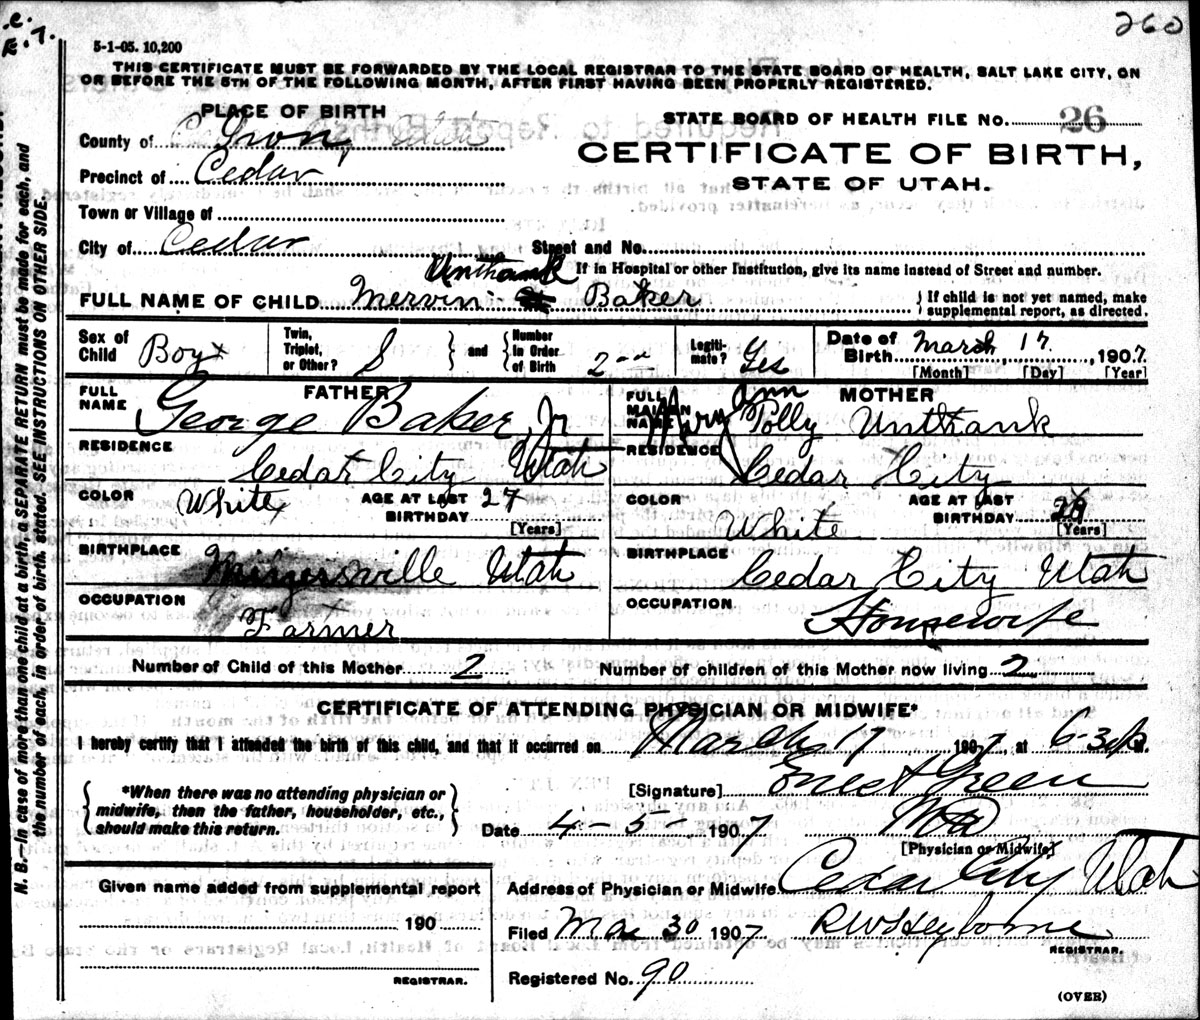 .C.
E.T.
260
5-1-05. 10,200
THIS CERTIFICATE MUST BE FORWARDED BY THE LOCAL REGISTRAR TO THE STATE BOARD OF HEALTH, SALT LAKE CITY, ON
OR BEFORE THE 5TH OF THE FOLLOWING MONTH, AFTER FIRST HAVING BEEN PROPERLY REGISTERED.
PLACE OF BIRTH
STATE BOARD OF HEALTH FILE NO. 26
County of Iron, Utah
CERTIFICATE OF BIRTH,
Precinct of Cedar
STATE OF UTAH.
Town or Village of
City of Cedar Street and No.
Unthank If in Hospital or other Institution, give its name instead of Street and number.
FULL NAME OF CHILD Mervin Baker { If child is not yet named, make supplemental report, as directed.
Sex of Child Boy Twin, Triplet, or Other? S and Number in Order of Birth 2nd Legiti-mate? Yes Date of Birth March 17, 1907
[Month] [Day] [Year]
FATHER
FULL NAME George Baker Jr
MOTHER
FULL MAIDEN NAME Mary Ann Polly Unthank
RESIDENCE Cedar City Utah
RESIDENCE Cedar City
COLOR White AGE AT LAST BIRTHDAY 27 [Years]
COLOR White AGE AT LAST BIRTHDAY [Years]
BIRTHPLACE Minersville Utah
BIRTHPLACE Cedar City Utah
OCCUPATION Farmer
OCCUPATION Housewife
Number of Child of this Mother 2 Number of children of this Mother now living 2
CERTIFICATE OF ATTENDING PHYSICIAN OR MIDWIFE*
I hereby certify that I attended the birth of this child, and that it occurred on March 17 1907, at 6-30 P. M.
*When there was no attending physician or
midwife, then the father, householder, etc.,
should make this return.
[Signature] Green
Date 4-5- 1907 MD
[Physician or Midwife]
Given name added from supplemental report
190
REGISTRAR.
Address of Physician or Midwife Cedar City Utah
Filed Mar 30 1907 RW Heyborne
REGISTRAR.
Registered No. 90
(OVER)
N. B.—In case of more than one child at a birth, a SEPARATE RETURN must be made for each, and
the number of each, in order of birth, stated. SEE INSTRUCTIONS ON OTHER SIDE.